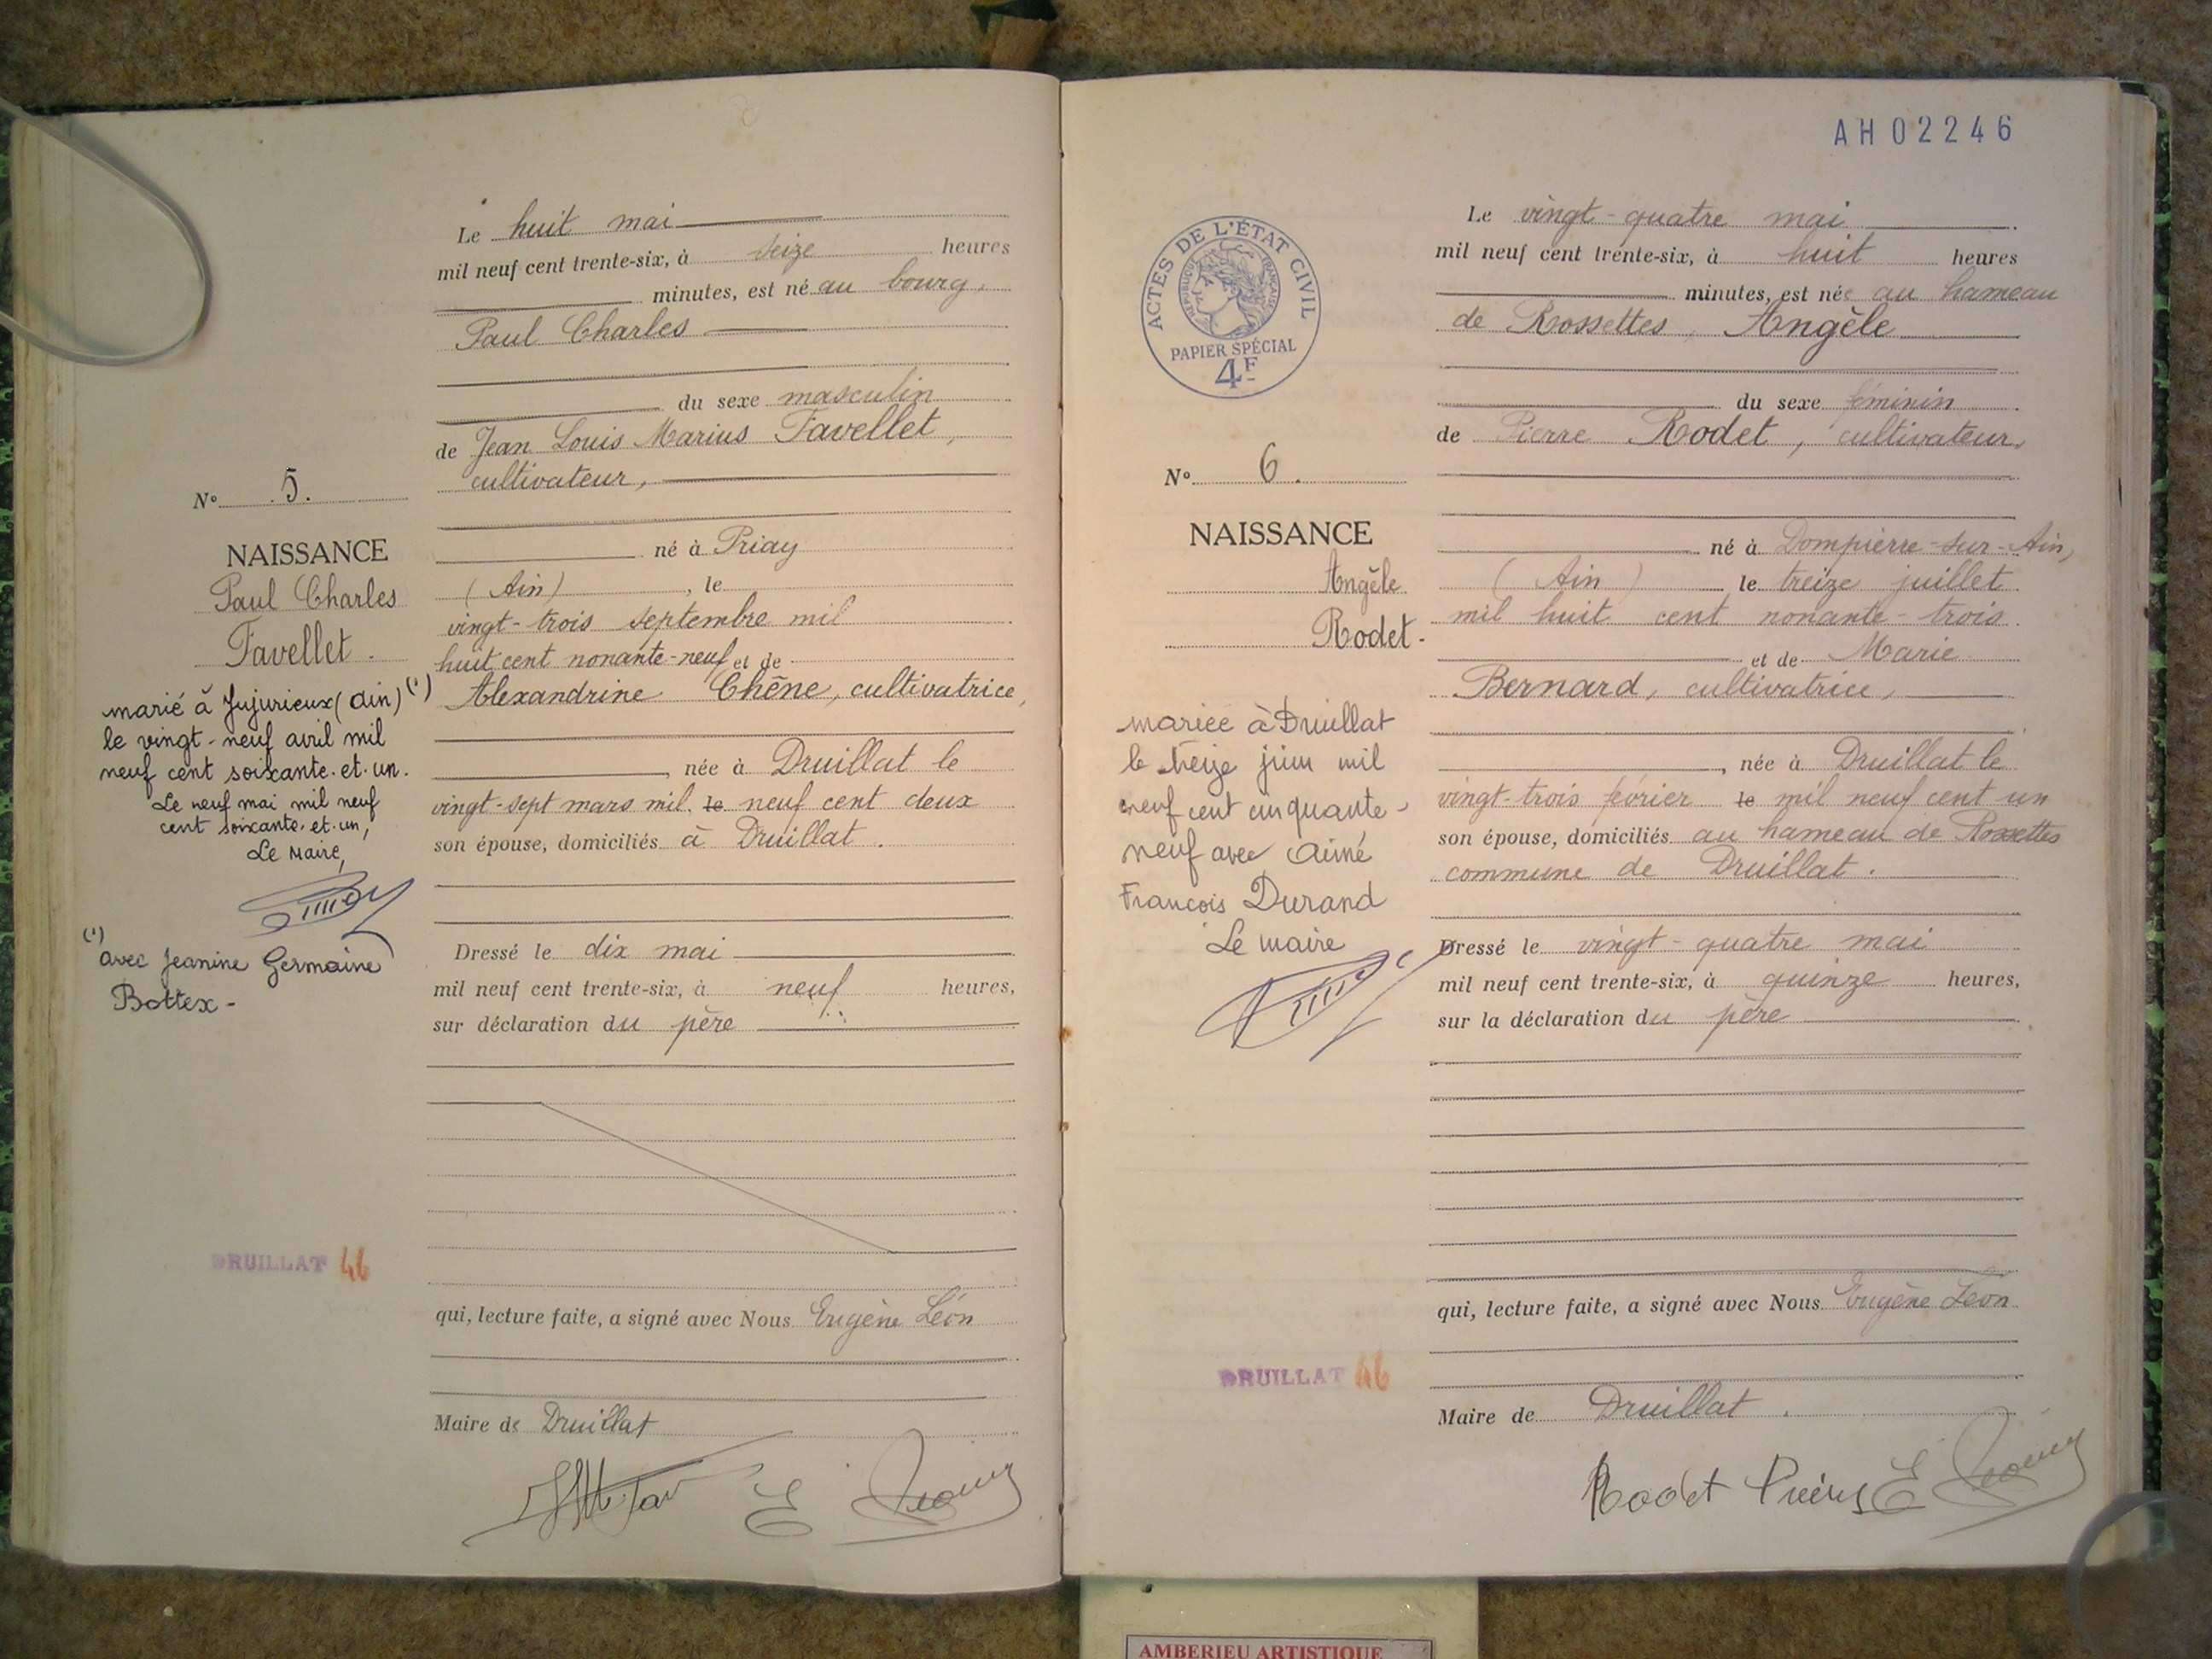 Le huit mai
mil neuf cent trente-six, à seize heures
minutes, est né au bourg,
Paul Charles
du sexe masculin
de Jean Louis Marius Favellet,
cultivateur,
né à Priay
(Ain), le
vingt-trois septembre mil
huit cent nonante-neuf et de
Alexandrine Chêne, cultivatrice,
née à Druillat le
vingt-sept mars mil le neuf cent deux
son épouse, domiciliés à Druillat.
Dressé le dix mai
mil neuf cent trente-six, à neuf heures,
sur déclaration du père
qui, lecture faite, a signé avec Nous Eugène Léon
Maire de Druillat
No 5.
NAISSANCE
Paul Charles
Favellet.
marié à Jujurieux (Ain) (1)
le vingt-neuf avril mil
neuf cent soixante-et-un.
Le neuf mai mil neuf
cent soixante-et-un,
Le Maire,
(1)
avec Jeanine Germaine
Bottex-
DRUILLAT 46
AH02246
ACTES DE L'ÉTAT CIVIL
RÉPUBLIQUE FRANÇAISE
PAPIER SPÉCIAL
4F
Le vingt-quatre mai
mil neuf cent trente-six, à huit heures
minutes, est née au hameau
de Rossettes, Angèle
du sexe féminin
de Pierre Rodet, cultivateur,
né à Dompierre-sur-Ain,
(Ain) le treize juillet
mil huit cent nonante-trois
et de Marie
Bernard, cultivatrice,
née à Druillat le
vingt-trois février le mil neuf cent un
son épouse, domiciliés au hameau de Rossettes
commune de Druillat.
Dressé le vingt-quatre mai
mil neuf cent trente-six, à quinze heures,
sur la déclaration du père
qui, lecture faite, a signé avec Nous Eugène Léon
Maire de Druillat.
Rodet Pierre E
No 6.
NAISSANCE
Angèle
Rodet-
mariée à Druillat
le treize juin mil
neuf cent cinquante-
neuf avec Aimé
François Durand
Le maire
DRUILLAT 46
AMBERIEU ARTISTIQUE